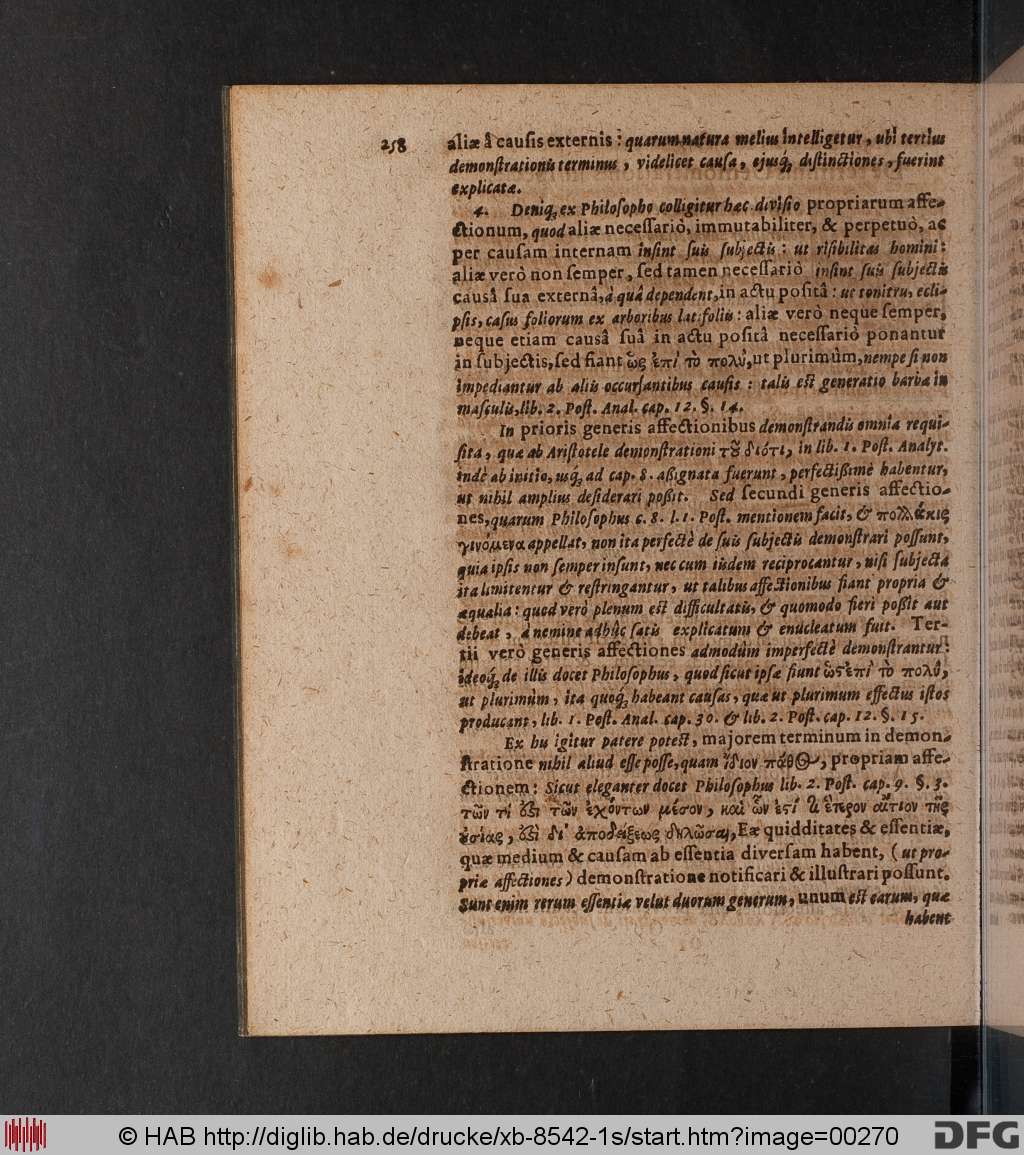 258
aliæ â causis externis : quarum natura melius intelligetur, ubi tertius
demonſtrationis terminus, videlicet cauſa, ejusq́; diſtinctiones, fuerint
explicatæ.
4. Deniq; ex Philoſopho colligitur hæc diviſio propriarum affe-
ctionum, quod aliæ neceſſariò, immutabiliter, & perpetuò, ac
per cauſam internam inſint ſuis ſubjectis : ut riſibilitas homini :
aliæ verò non ſemper, ſed tamen neceſſariò inſint ſuis ſubjectis
causâ ſua externâ, à quâ dependent, in actu poſitâ : ut tonitru, ecli-
pſis, caſus foliorum ex arboribus latifoliis : aliæ verò neque ſemper,
neque etiam causâ ſuâ in actu poſitâ neceſſariò ponantur
in ſubjectis, ſed fiant ὡς ἐπὶ τὸ πολὺ, ut plurimùm, nempe ſi non
impediantur ab aliis occurſantibus cauſis : talis eſt generatio barbæ in
maſculis, lib. 2. Poſt. Anal. cap. 12. §. 14.
In prioris generis affectionibus demonſtrandis omnia requi-
ſita, quæ ab Ariſtotele demonſtrationi τοῦ διότι, in lib. 1. Poſt. Analyt.
indè ab initio, usq́; ad cap. 8. aßignata fuerunt, perfectißimè habentur,
ut nihil amplius deſiderari poßit. Sed ſecundi generis affectio-
nes, quarum Philoſophus c. 8. l. 1. Poſt. mentionem facit, & πολλάκις
γινόμενα appellat, non ita perfectè de ſuis ſubjectis demonſtrari poſſunt,
quia ipſis non ſemper inſunt, nec cum iisdem reciprocantur, niſi ſubjecta
ita limitentur & reſtringantur, ut talibus affectionibus fiant propria &
æqualia : quod verò plenum eſt difficultatis, & quomodo fieri poßit aut
debeat, à nemine adhûc ſatis explicatum & enucleatum fuit. Ter-
tii verò generis affectiones admodùm imperfectè demonſtrantur :
ideoq́; de illis docet Philoſophus, quod ſicut ipſæ fiunt ὡς ἐπὶ τὸ πολὺ,
ut plurimùm, ita quoq́; habeant cauſas, quæ ut plurimum effectus iſtos
producant, lib. 1. Poſt. Anal. cap. 30. & lib. 2. Poſt. cap. 12. §. 15.
Ex his igitur patere poteſt, majorem terminum in demon-
ſtratione nihil aliud eſſe poſſe, quam ἴδιον πάθος, propriam affe-
ctionem : Sicut eleganter docet Philoſophus lib. 2. Poſt. cap. 9. §. 3.
τῶν τί ἐστι τῶν ἐχόντων μέσον, καὶ ὧν ἐστί τι ἕτερον αἴτιον τῆς
οὐσίας, ἐστὶ δι' ἀποδείξεως δηλῶσαι, Eæ quidditates & eſſentiæ,
quæ medium & cauſam ab eſſentia diverſam habent, (ut pro-
priæ affectiones) demonſtratione notificari & illuſtrari poſſunt.
Sunt enim rerum eſſentiæ velut duorum generum, unum eſt earum, quæ
habent
© HAB http://diglib.hab.de/drucke/xb-8542-1s/start.htm?image=00270
DFG